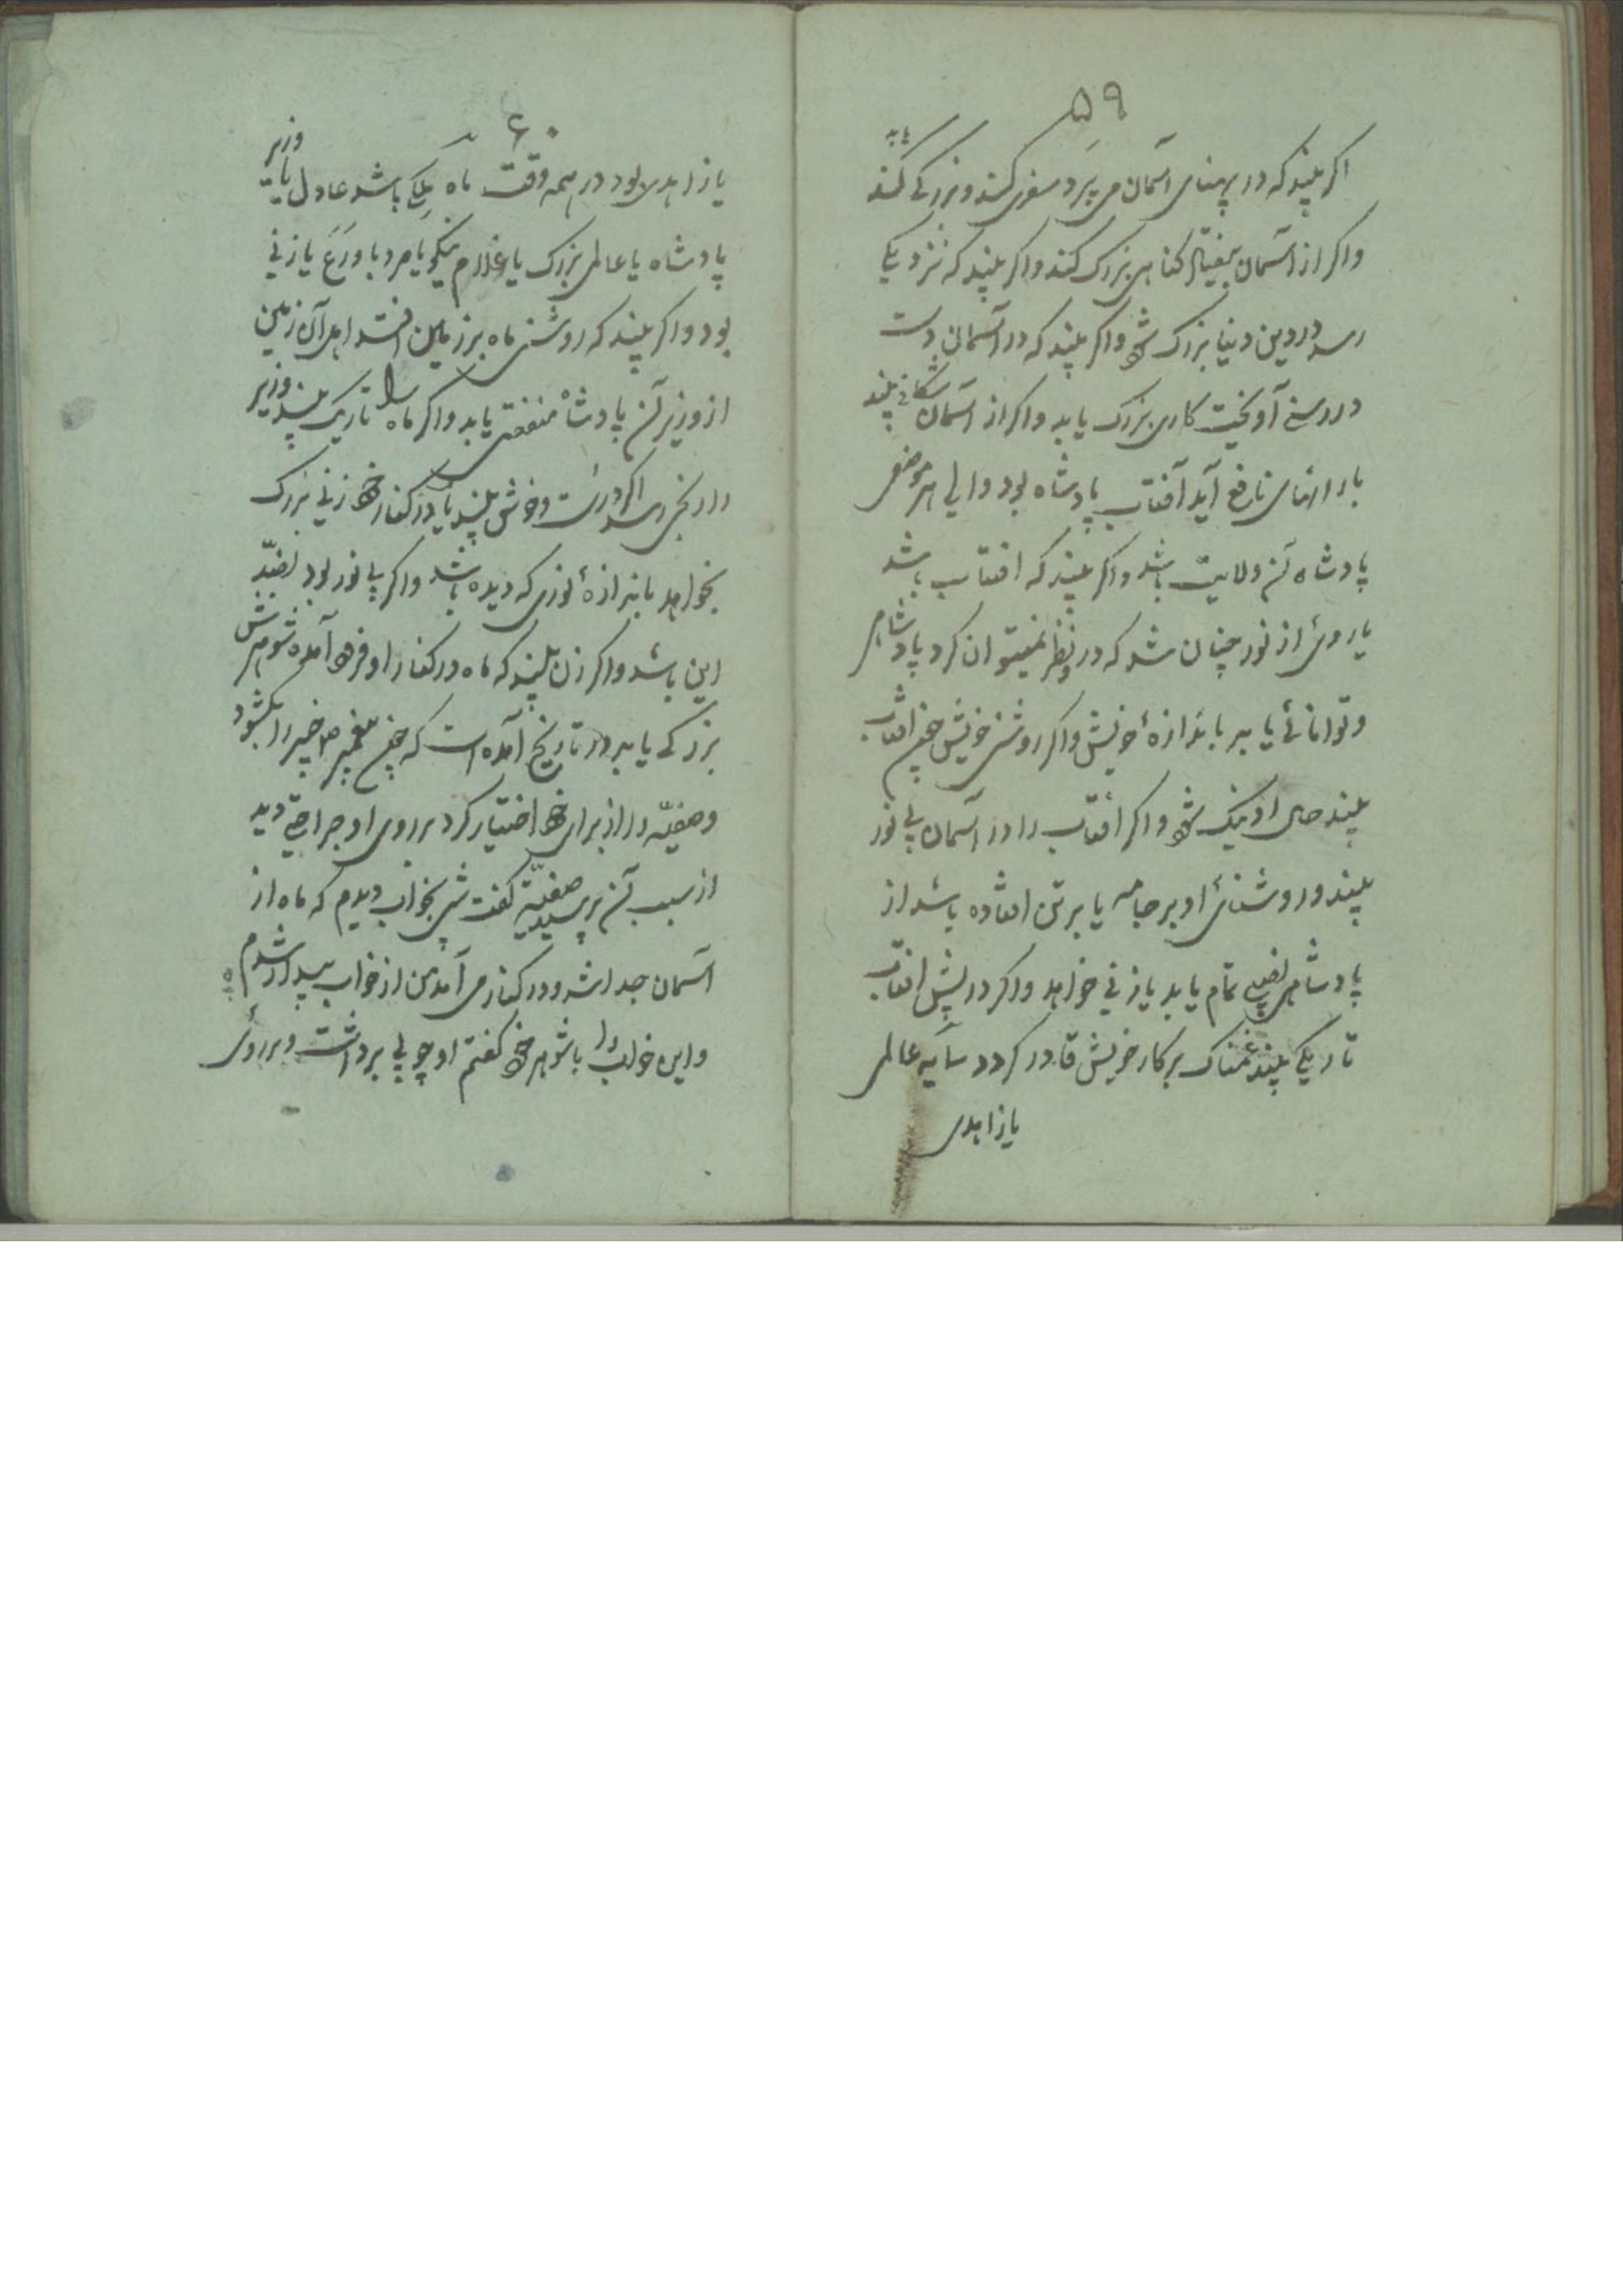 ۵۹
یابد
اکر بیند که در پهنای آسمان می پرد سفری کند و بزرکی کند
واکر از آسمان بیفتد کناهی بزرک کند واکر بیند که نزدیکی
رسد در دین و دنیا بزرک شود واکر بیند که در آسمان دست
در رسنی آویخت کاری بزرک یابد واکر از آسمان شکافی بیند
بارانهای نافع آید آفتاب پادشاه بود والی هر موضعی
پادشاه آن ولایت باشد واکر بیند که افتاب باشد
یا روی از نور چنان شد که درو نظر نمیتوان کرد پادشاهی
وتوانائی یابد باندازهٔ خویش واکر روشنی خویش چون افتاب
بیند حال او نیک شود واکر افتاب را در آسمان بی نور
بیند وروشنائی او بر جامه یا بر تن افتاده باشد از
پادشاهی نصیبی تمام یابد یا زنی خواهد واکر در پیش افتاب
تاریکی بیند غمناک بر کار خویش قادر کردد سایه عالمی
یا زاهدی
۶۰
یا زاهدی بود در همه وقت ماه ملکی باشد عادل یا وزیر
پادشاه یا عالمی بزرک یا غلام نیکو یا مرد با ورع یا زنی
بود واکر بیند که روشنی ماه بر زمین افتد اهل آن زمین
از وزیر آن پادشاه منفعتی یابد واکر ماه را تاریک بیند وزیر
را رنجی رسد اکر درست وخوش بیند یا در کنار خود زنی بزرک
بخواهد باندازهٔ نوری که دیده باشد واکر بی نور بود بضد
این باشد واکر زن بیند که ماه در کنار او فرود آمده شوهرش
بزرکی یابد ودر تاریخ آمده است که چون پیغمبر ص خیبر را بکشود
وصفیّه را از برای خود اختیار کرد بر روی او جراحتی دید
از سبب آن پرسید صفیّه کفت شبی بخواب دیدم که ماه از
آسمان جدا شد ودر کنار من آمد من از خواب بیدار شدم
واین خواب را با شوهر خود کفتم او چوبی برداشت وبر روی